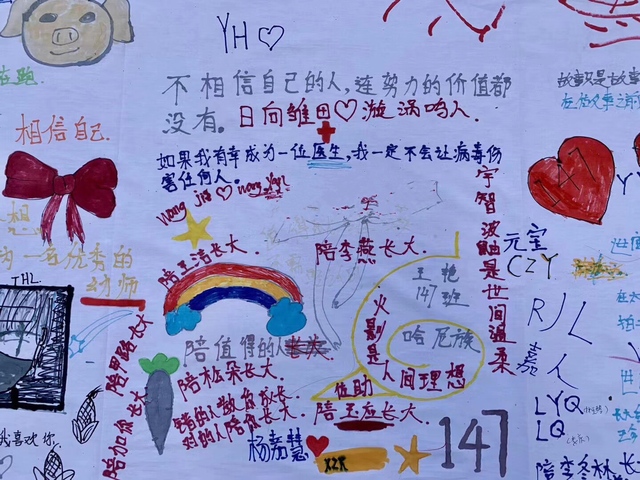 YH
不相信自己的人,连努力的价值都
没有。
日向雏田♡漩涡鸣人.
如果我有幸成为一位医生,我一定不会让病毒伤
害任何人。
相信自己.
宇智波鼬是世间温柔
陪王洁长大.
陪李燕长大.
王艳
147班
元宝
CZY
哈尼族
火影是
人间理想
佐助
陪值得的人
陪松朵长大.
错的人教你成长.
对的人陪你长大.
陪玉应长大.
杨嘉慧
XZR
147
陪加你长大
THL
一名优秀的
幼师
我喜欢你.
RJL
嘉人
LYQ
LQ
陪李冬林长
故事只是故事